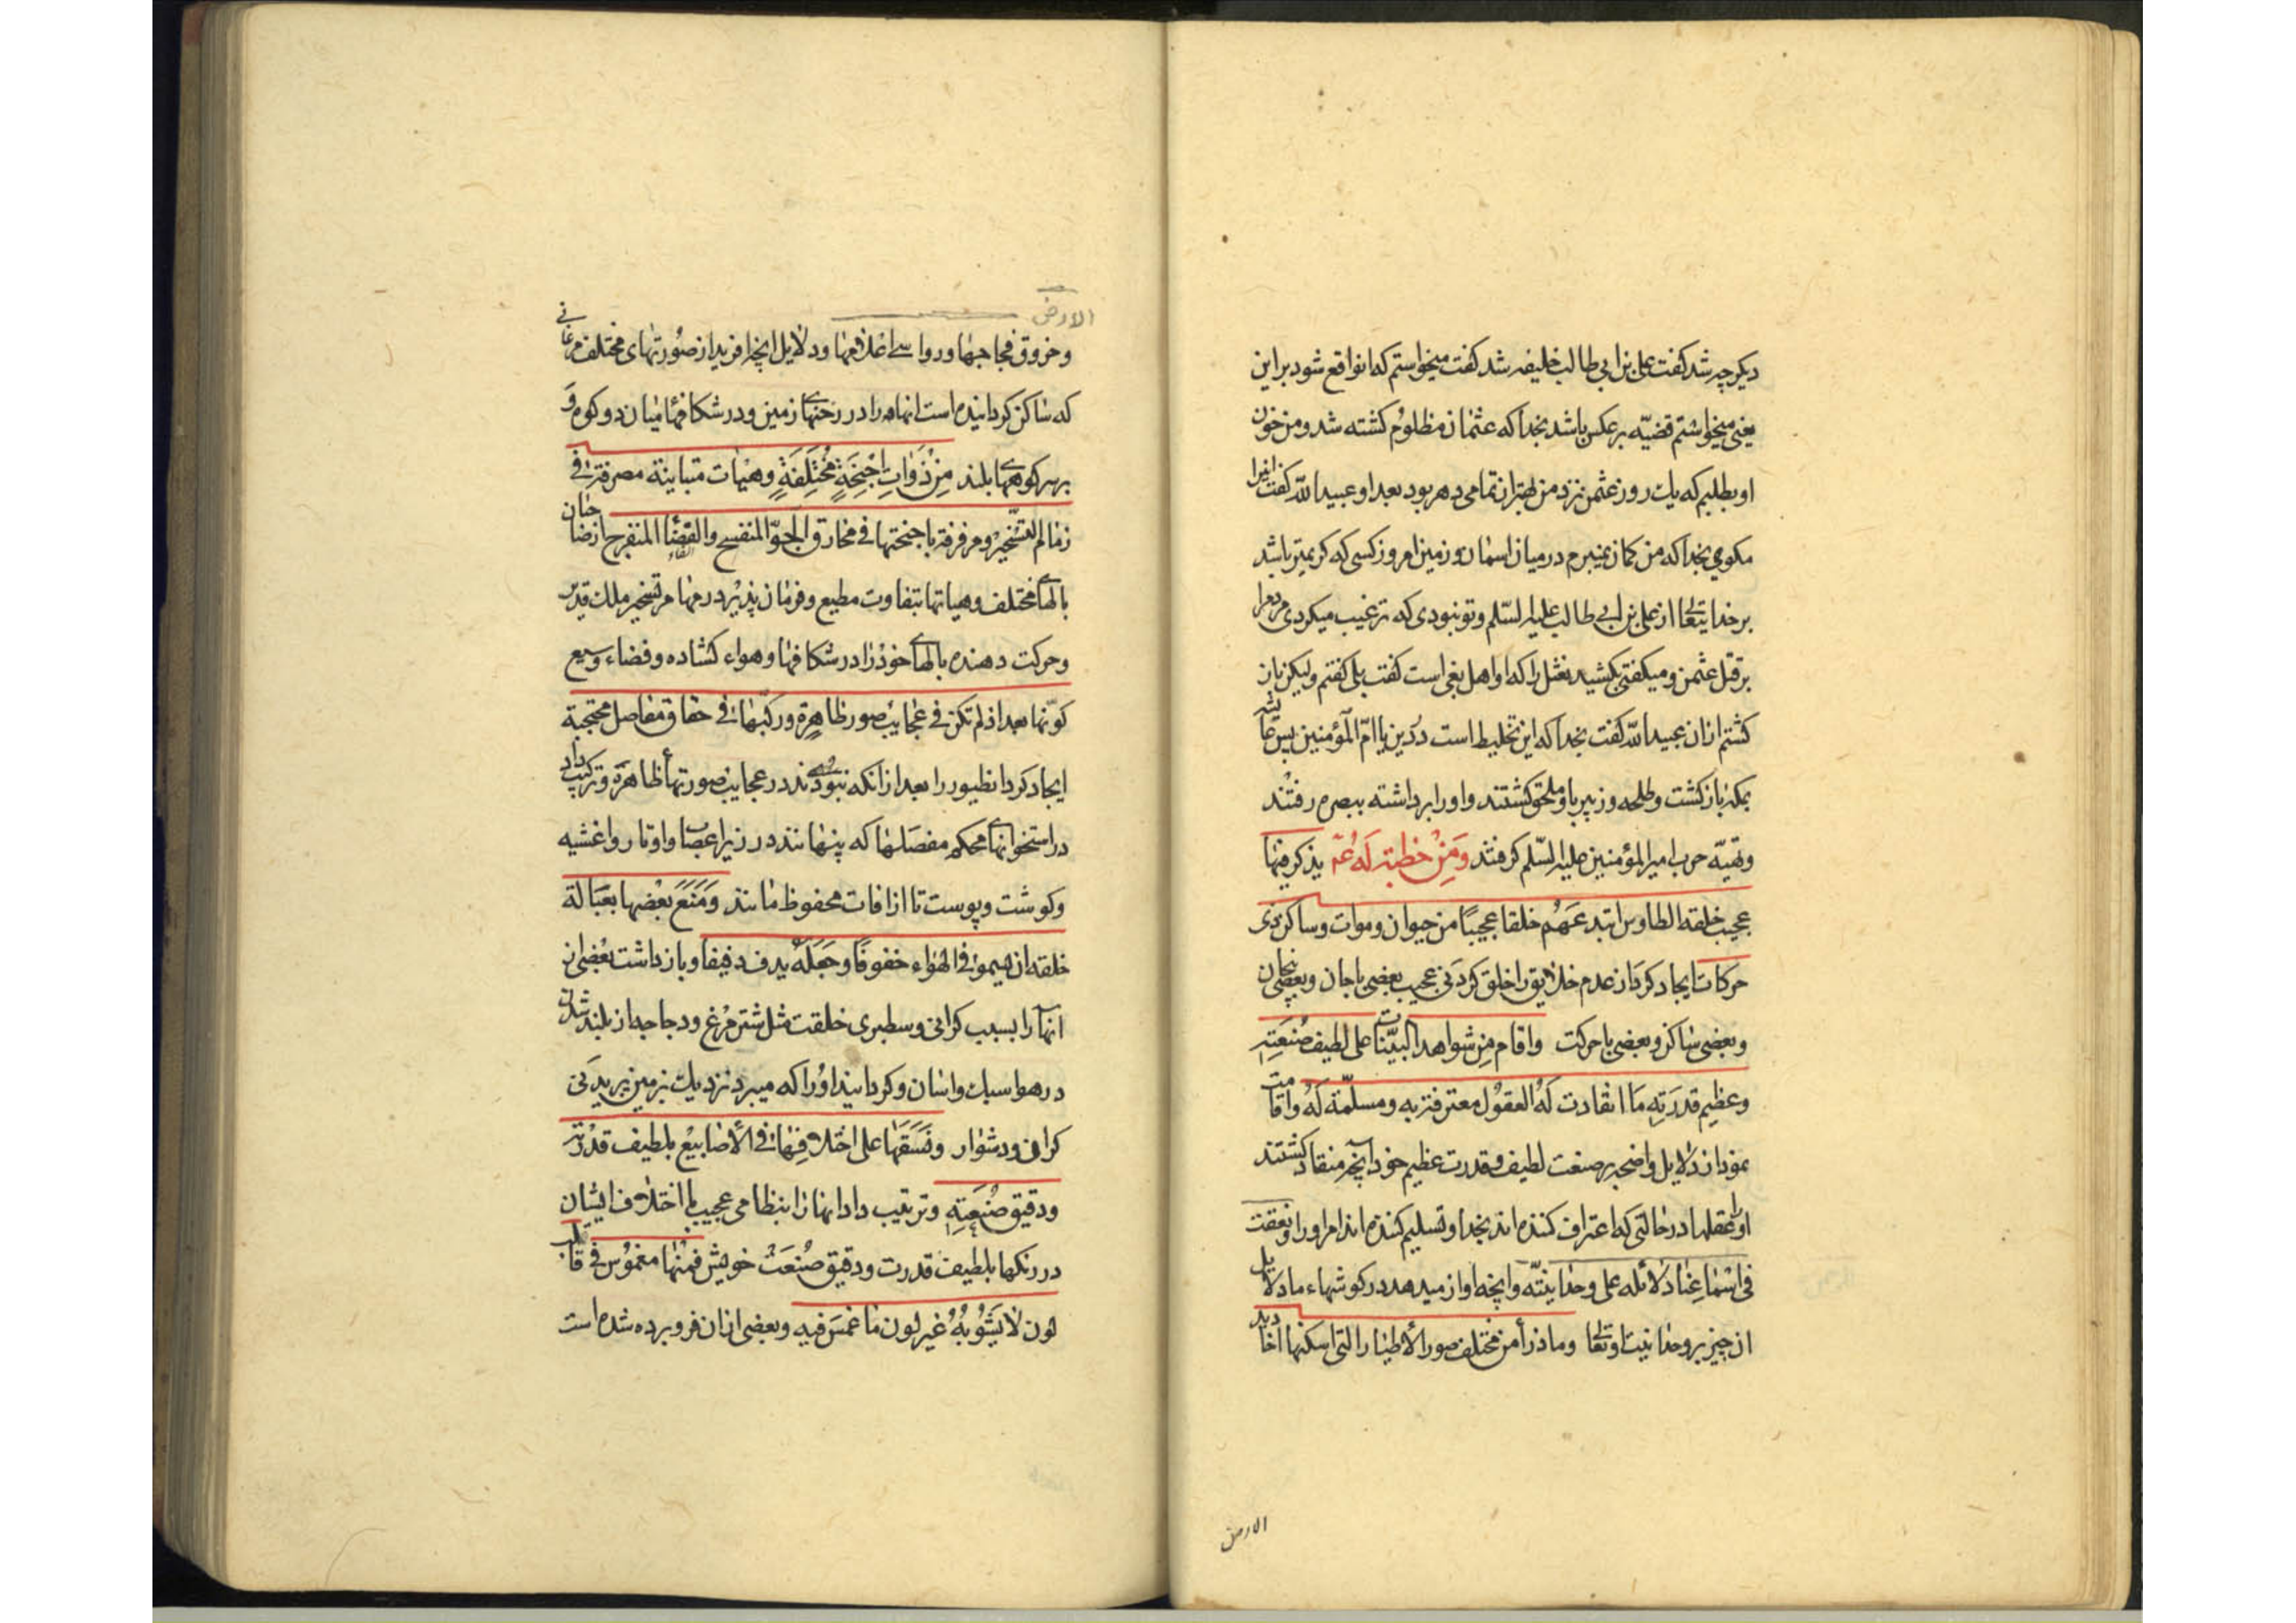 دیکر چه شد کفت علی بن ابی طالب خلیفه شد کفت میخواستم که انواقع شود بر این
یعنی میخواستم قضیّه برعکس باشد بخدا که عثمان مظلوم کشته شد و من خون
او بطلبم که یک روز عثمن نزد من بهتر از تمامی دهر بود بعد او عبید الله کفت
مکوی بخدا که من کمان نمیبرم در میان اسمان و زمین امروز کسی که کریمتر باشد
بر خدایتعالی از علی بن ابی طالب علیه السّلم و تو نبودی که ترغیب میکردی مردمرا
بر قتل عثمن و میکفتی بکشید نعثل را که او اهل بغی است کفت بلی کفتم و لیکن باز
کشتم از ان عبید الله کفت بخدا که این تخلیط است در دین یا امّ المؤمنین پس عایشه
بمکه باز کشت و طلحه و زبیر باو ملحق کشتند و او را برداشته ببصره رفتند
و تهیّه حرب امیر المؤمنین علیه السّلم کرفتند وَمِنْ خطبته لَهُ عَم یذکر فیها
عجیب خلقه الطاوس ابتدعهُم خلقا عجیبًا من حیوان و موات و ساکن و ذی
حرکات ایجاد کرد از عدم خلایق را خلق کردنی عجیب بعضی با جان و بعضی بیجان
و بعضی ساکن و بعضی با حرکت و اقام مِن شواهد البیّنات علی لطیف صُنعَتِهِ
وعظیم قدرَتِهِ مَا انقادت لَهُ العقوُل معترفة به و مسلّمة لَهُ و اقامت
نمود از دلایل واضحه بر صنعت لطیف و قدرت عظیم خود آنچه منقاد کشتند
او را عقلها در حالتی که اعتراف کننده اند بخدا و تسلیم کننده اند امر او را و نعقت
فی اسْمَاعِنَا دَلائله علی وحدانیّته و انچه اواز میدهد در کوشهاء ما دلایل
ان چیز بر وحدانیت او تعالی و ما ذرأ من مختلف صور الأطیار التی اسکنها اخادید
الارض
الارض
و خروق فجاجها و رواسی اعلامها و دلایل انچه افرید از صُورتهای مختلف مرغانی
که ساکن کردانیده است انها را در رخنهای زمین و در شکافهاء میان دو کوه و
بر سر کوههای بلند مِنْ ذَوَاتِ اَجْنِحَةٍ مُخْتَلِفَةٍ وهیٰات متباینة مصرفة فی
زمام التسّخیر و مرفرفة باجنحتها فی مخارق الجوّ المنفسح والفضٰا المنفرج از صاحبان
بالهای مختلف و هیاتها متفاوت مطیع و فرمان پذیر در مهام تسخیر ملک قدیر
و حرکت دهنده بالهای خود را در شکافها و هواء کشاده و فضاء وسیع
کوّنها بعد اذ لم تکن فی عجایب صور ظاهِرة و رکّبها فی حقاق مفاصل محتجبة
ایجاد کرد انطیور را بعد از انکه نبودند در عجایب صورتهاء ظاهره و ترکیب داد
در استخوانهای محکم مفصَلها که پنهانند در زیر اعصاب و اوتار و اغشیه
و کوشت و پوست تا از افات محفوظ مانند وَمَنَعَ بَعْضها بعَبَالة
خلقه ان یسموا فی الهواء خفوفًا وجَعَلَهُ یدف دفیفا و باز داشت بعضی از
انها را بسبب کرانی و سطبری خلقت مثل شتر مرغ و دجاجه از بلند شدن
در هوا سبک و اسان و کردانید او را که میپرد نزدیک بزمین پریدنی
کران و دشوار ونَسَقَهَا علی اختلافِهَا فی الأصابیغ بلطیف قدْرتِه
ودقیق صُنعَتِهِ و ترتیب داد انها را بنظامی عجیب با اختلاف ایشان
در رنکها بلطیف قدرت و دقیق صُنعت خویش فمنْهَا مغموس فی قالب
لون لا یَشُوبُهُ غیر لون مَا غمسَ فیه و بعضی از ان فرو برده شده است